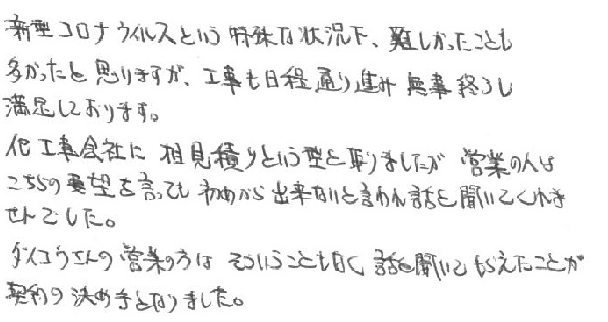 新型コロナウイルスという特殊な状況下、難しかったことも
多かったと思いますが、工事も日程通り進み無事終了し
満足しております。
他工事会社に相見積りという型を取りましたが営業の人は
こちらの要望を言っても初めから出来ないと言われ話を聞いてくれま
せんでした。
ダイコウさんの営業の方はそういうことも無く話を聞いてもらえたことが
契約の決め手となりました。